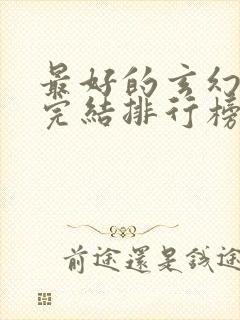 最好的玄幻
完結排行榜
前途還是钱途